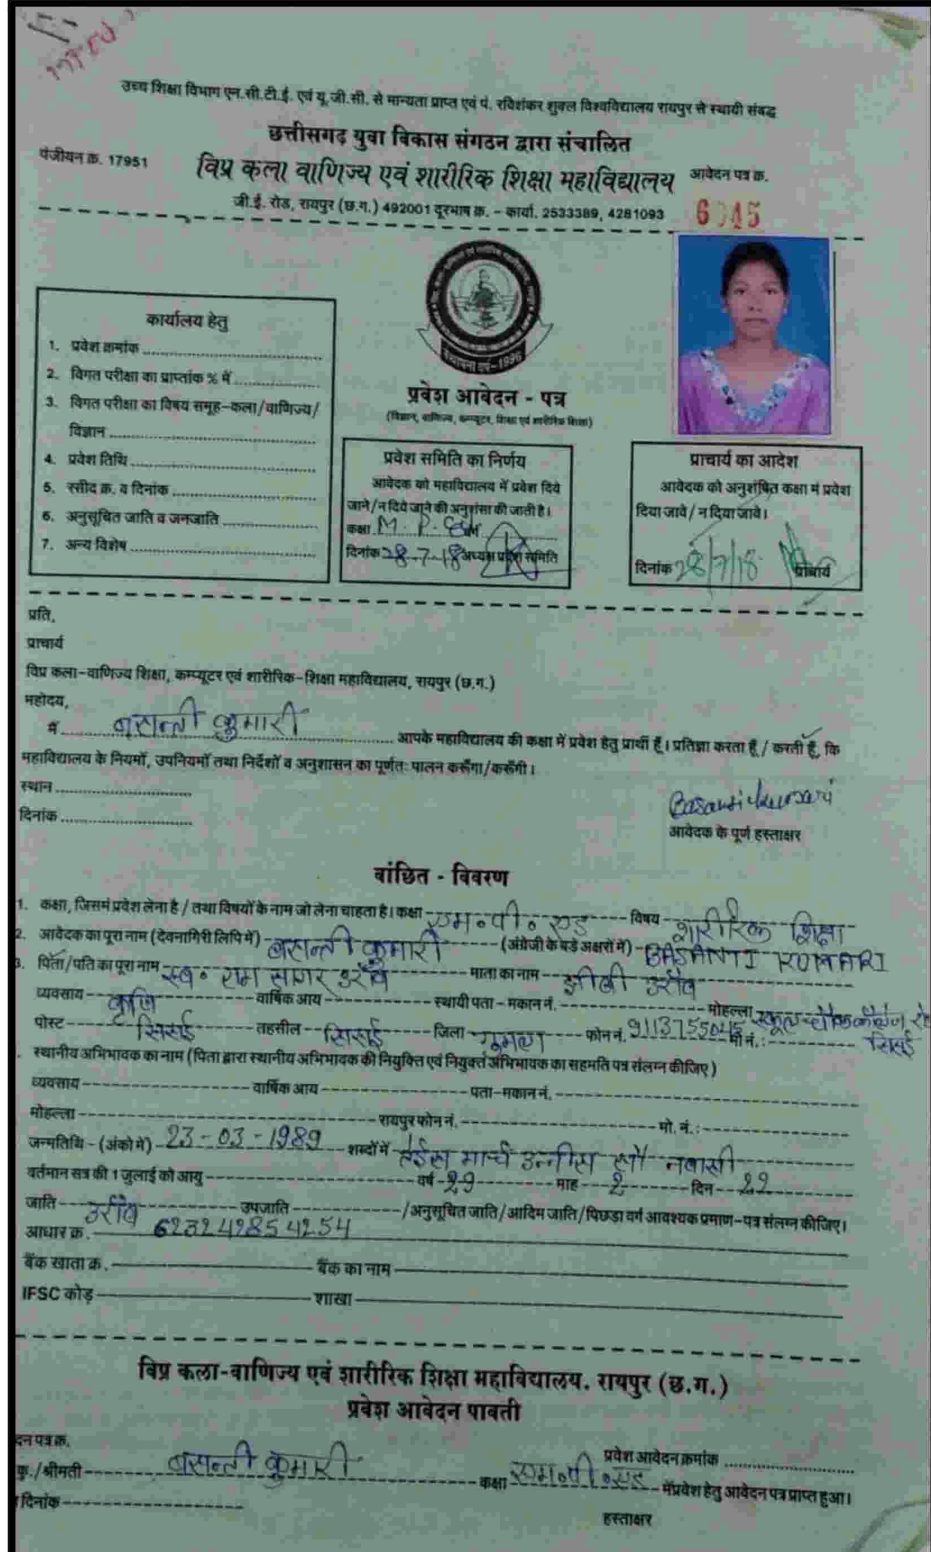 उच्च शिक्षा विभाग एन.सी.टी.ई. एवं यू.जी.सी. से मान्यता प्राप्त एवं पं. रविशंकर शुक्ल विश्वविद्यालय रायपुर से स्थायी संबद्ध
छत्तीसगढ़ युवा विकास संगठन द्वारा संचालित
पंजीयन क्र. 17951
विप्र कला वाणिज्य एवं शारीरिक शिक्षा महाविद्यालय
आवेदन पत्र क्र.
जी.ई. रोड, रायपुर (छ.ग.) 492001 दूरभाष क्र. - कार्या. 2533389, 4281093
स्थापना वर्ष-1996
कार्यालय हेतु
1. प्रवेश क्रमांक
2. विगत परीक्षा का प्राप्तांक % में
3. विगत परीक्षा का विषय समूह-कला/वाणिज्य/
विज्ञान
4. प्रवेश तिथि
5. रसीद क्र. व दिनांक
6. अनुसूचित जाति व जनजाति
7. अन्य विशेष
प्रवेश आवेदन - पत्र
(विज्ञान, वाणिज्य, कम्प्यूटर, शिक्षा एवं शारीरिक शिक्षा)
प्रवेश समिति का निर्णय
आवेदक को महाविद्यालय में प्रवेश दिये
जाने/न दिये जाने की अनुशंसा की जाती है।
कक्षा M. P. Ed
दिनांक 28-7-18 अध्यक्ष प्रवेश समिति
प्राचार्य का आदेश
आवेदक को अनुशंषित कक्षा में प्रवेश
दिया जावे/न दिया जावे।
दिनांक 28/7/18 प्राचार्य
प्रति,
प्राचार्य
विप्र कला-वाणिज्य शिक्षा, कम्प्यूटर एवं शारीरिक-शिक्षा महाविद्यालय, रायपुर (छ.ग.)
महोदय,
मैं बसन्ती कुमारी आपके महाविद्यालय की कक्षा में प्रवेश हेतु प्रार्थी हूँ। प्रतिज्ञा करता हूँ/करती हूँ, कि
महाविद्यालय के नियमों, उपनियमों तथा निर्देशों व अनुशासन का पूर्णतः पालन करूँगा/करूँगी।
स्थान
दिनांक
Basanti kumari
आवेदक के पूर्ण हस्ताक्षर
वांछित - विवरण
1. कक्षा, जिसमें प्रवेश लेना है / तथा विषयों के नाम जो लेना चाहता है। कक्षा एम०पी०एड विषय शारीरिक शिक्षा
2. आवेदक का पूरा नाम (देवनागिरी लिपि में) बसन्ती कुमारी (अंग्रेजी के बड़े अक्षरों में) BASANTI KUMARI
3. पिता/पति का पूरा नाम स्व० राम सागर उराँव माता का नाम उराँव
व्यवसाय कृषि वार्षिक आय स्थायी पता - मकान नं. मोहल्ला स्कूल चौक कॉलेज रोड सिसई
पोस्ट सिसई तहसील सिसई जिला गुमला फोन नं. मो नं.:
स्थानीय अभिभावक का नाम (पिता द्वारा स्थानीय अभिभावक की नियुक्ति एवं नियुक्त अभिभावक का सहमति पत्र संलग्न कीजिए)
व्यवसाय वार्षिक आय पता-मकान नं.
मोहल्ला रायपुर फोन नं. मो. नं.:
जन्मतिथि - (अंको में) 23-03-1989 शब्दों में तेईस मार्च उन्नीस सौ नवासी
वर्तमान सत्र की 1 जुलाई को आयु वर्ष 29 माह 2 दिन 22
जाति उराँव उपजाति /अनुसूचित जाति/आदिम जाति/पिछड़ा वर्ग आवश्यक प्रमाण-पत्र संलग्न कीजिए।
आधार क्र. 623242854254
बैंक खाता क्र. बैंक का नाम
IFSC कोड़ शाखा
विप्र कला-वाणिज्य एवं शारीरिक शिक्षा महाविद्यालय. रायपुर (छ.ग.)
प्रवेश आवेदन पावती
दन पत्र क्र. प्रवेश आवेदन क्रमांक
कु./श्रीमती बसन्ती कुमारी कक्षा एम०पी०एड में प्रवेश हेतु आवेदन पत्र प्राप्त हुआ।
दिनांक
हस्ताक्षर